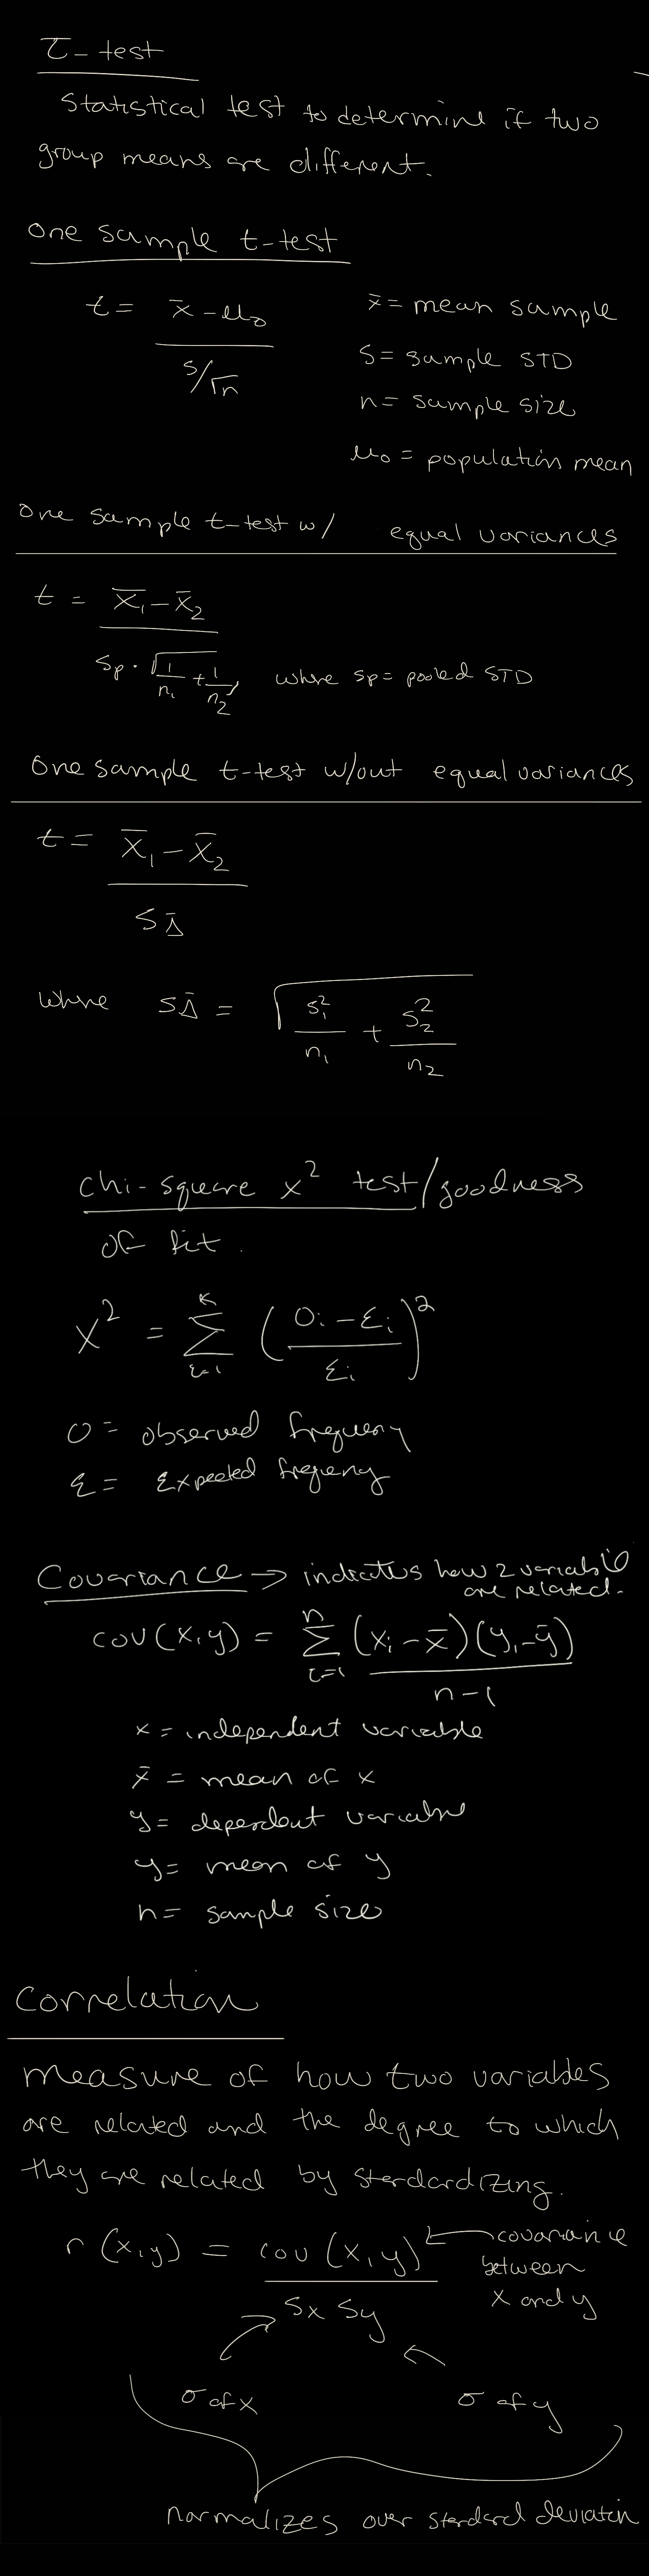 T-test
Statistical test to determine if two
group means are different.
One sample t-test
t = x̄ - μ₀ / s/√n
x̄ = mean sample
S = sample STD
n = sample size
μ₀ = population mean
One sample t-test w/ equal variances
t = x̄₁ - x̄₂ / Sp · √1/n₁ + 1/n₂, where sp = pooled STD
One sample t-test w/out equal variances
t = x̄₁ - x̄₂ / SΔ̄
where SΔ̄ = √s₁²/n₁ + s₂²/n₂
Chi-square x² test/goodness
of fit.
x² = Σ k i=1 (Oi - Ei / Ei)²
O = observed frequency
E = Expected frequency
Covariance → indicates how 2 variables
are related.
cov(x,y) = Σ n i=1 (xi - x̄)(yi - ȳ) / n-1
x = independent variable
x̄ = mean of x
y = dependent variable
y = mean of y
n = sample size
Correlation
measure of how two variables
are related and the degree to which
they are related by standardizing.
r(x,y) = cov(x,y) / Sx Sy
← covariance
between
x and y
σ of x
σ of y
normalizes over standard deviation